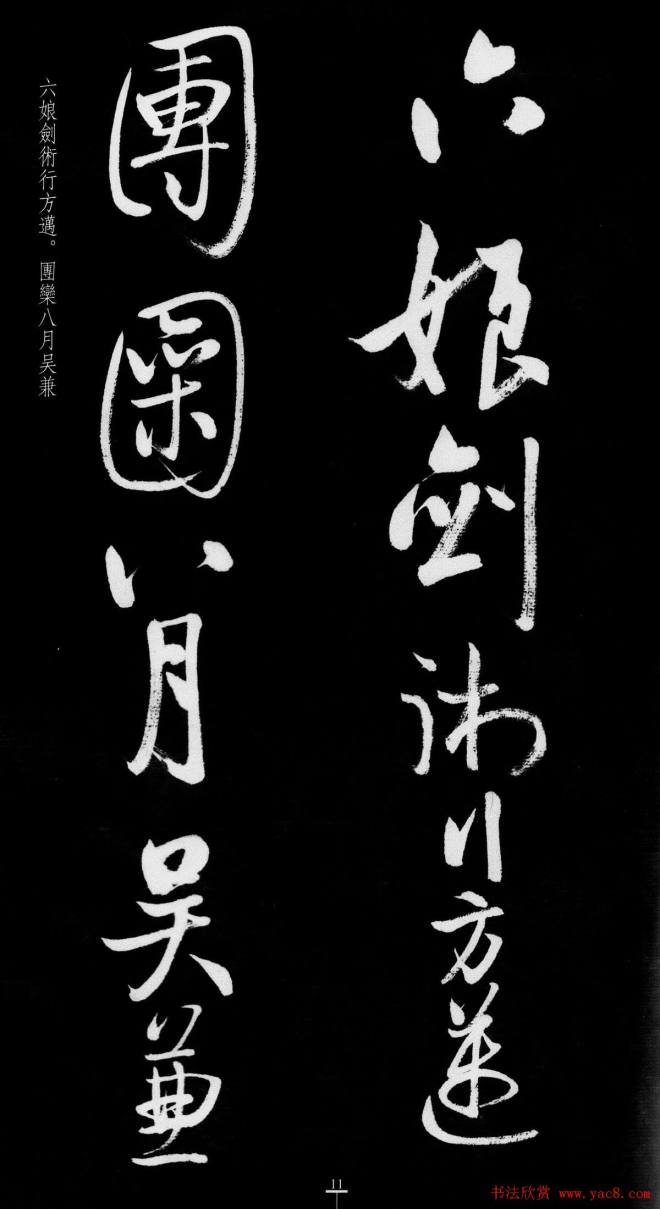 六娘劍術行方邁
團欒八月吳兼
六娘劍術行方邁。團欒八月吳兼
11
书法欣赏 www.yac8.com